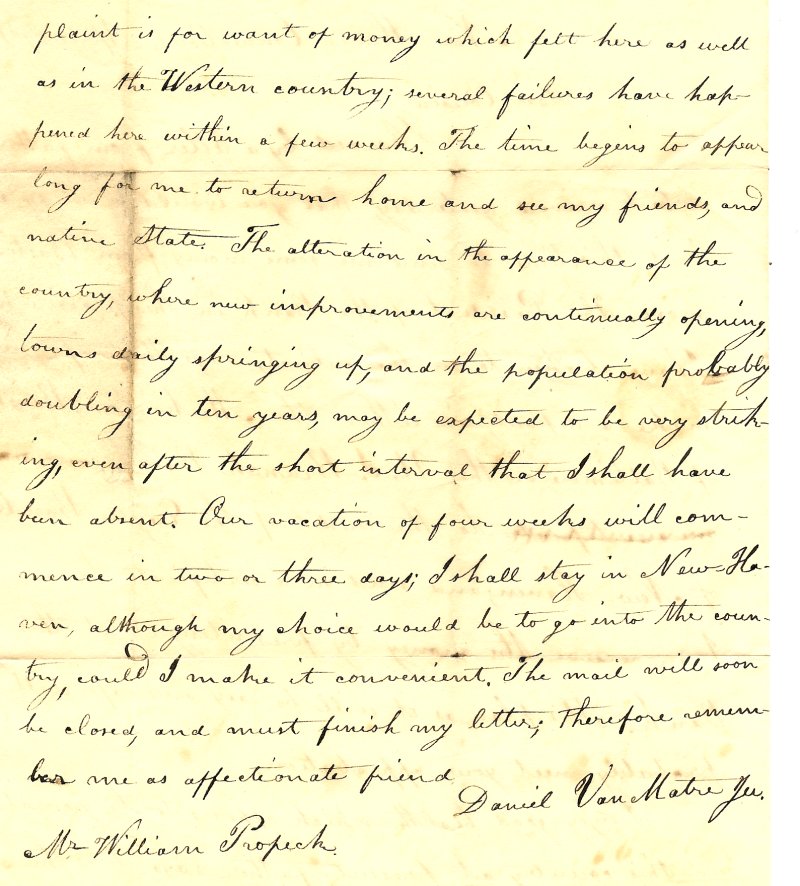 plaint is for want of money which felt here as well
as in the Western country; several failures have hap-
pened here within a few weeks. The time begins to appear
long for me to return home and see my friends, and
native State. The alteration in the appearance of the
country, where new improvements are continually opening,
towns daily springing up, and the population probably
doubling in ten years, may be expected to be very strik-
ing, even after the short interval that I shall have
been absent. Our vacation of four weeks will com-
mence in two or three days; I shall stay in New-Ha-
ven, although my choice would be to go into the coun-
try, could I make it convenient. The mail will soon
be closed, and must finish my letter; therefore remem-
ber me as affectionate friend
Daniel Van Matre Ju.
Mr William Propeck.